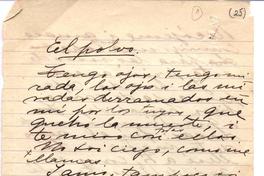 (25)
El polvo.
Tengo ojos, tengo mi-
rada, los ojos i las mi-
radas derramados en
mí por los tuyos, que
quebró la muerte, i
te miro con todas ellas.
No soi ciego, como me
llamas.